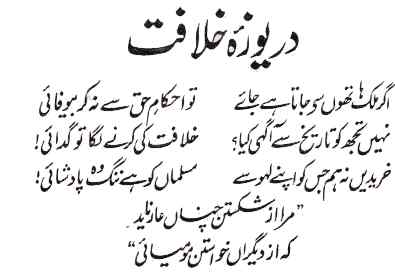 دریوزۂ خلافت
اگر ملک ہاتھوں سے جاتا ہے جائے تو احکامِ حق سے نہ کر بے وفائی
نہیں تجھ کو تاریخ سے آگہی کیا؟ خلافت کی کرنے لگا تو گدائی!
خریدیں نہ ہم جس کو اپنے لہو سے مسلماں کو ہے ننگ وہ پادشائی!
"مرا از شکستن چناں عار ناید
کہ از دیگراں خواستن مومیائی"